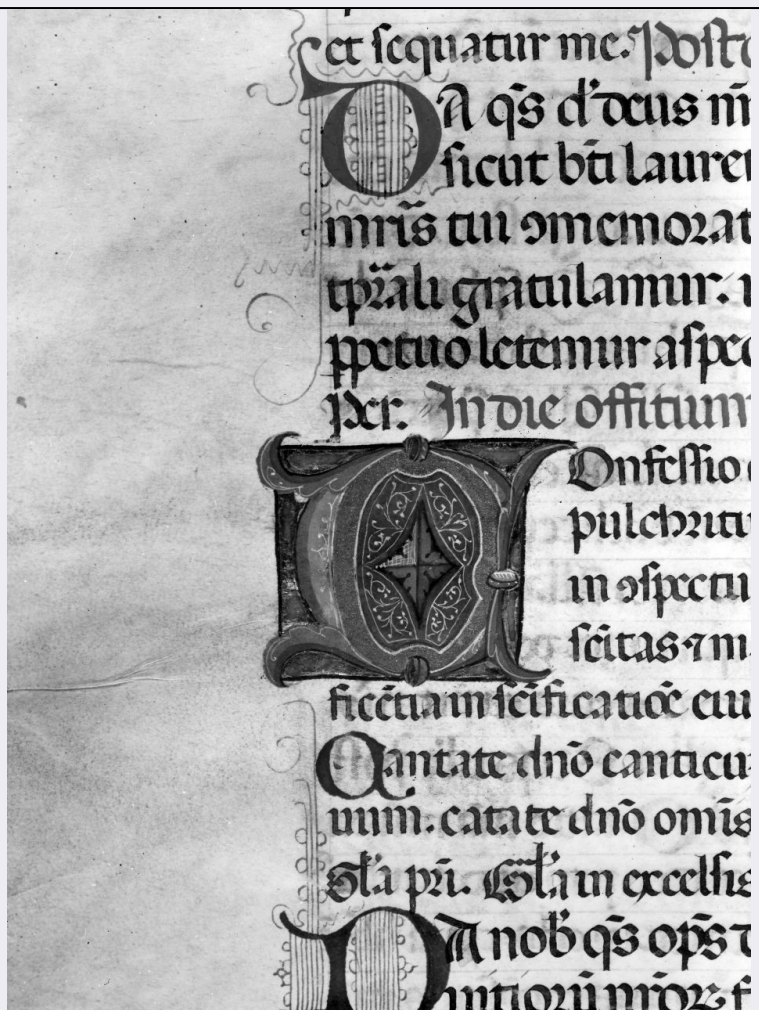 et sequatur me. Postc
DA q̄s d̓ deus n̄r
sicut bt̄i lauren
mr̄is tui ꝯmemorat
tp̄rali gratulamur.
ꝑpetuo letemur aspec
Per. In die offitium
COnfessio
pulchritu
in ꝯspectu
sc̄itas ⁊ m
ficc̄tia in sc̄ificatiōe eiu
Cantate dn̄o canticu
uum. cātate dn̄o omīs
Gl̄a pr̄i. Gl̄a in excelsis
DA nob̄ q̄s op̄s
uitiorū nr̄oꝝ f